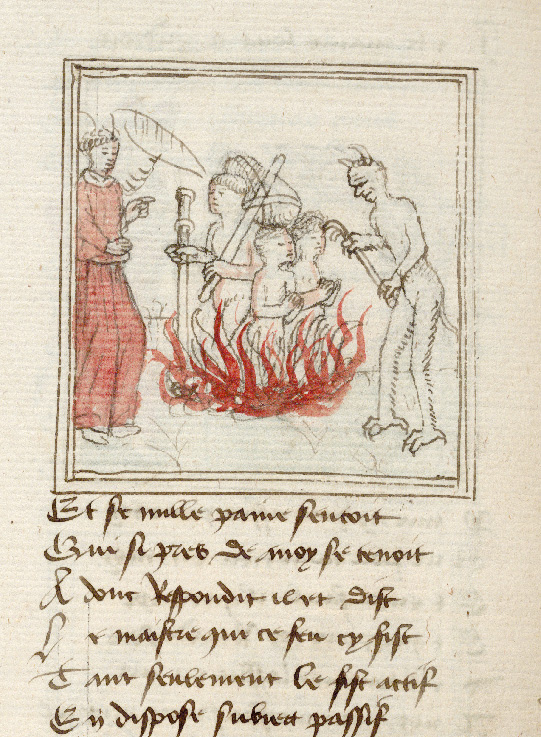 Et se nulle paine sentoit
Qui si pres de moy se tenoit
A donc Respondit il et dist
L e maistre qui ce feu cy fist
T ant seulement le fist actif
E n dispose subiect passif